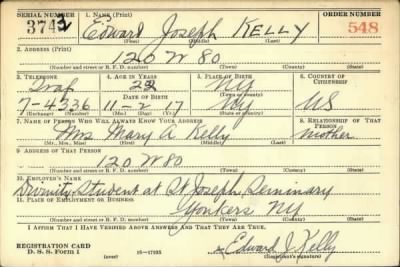 SERIAL NUMBER 1. NAME (Print) ORDER NUMBER
3742 Edward Joseph KELLY 548
2. ADDRESS (Print)
120 W 80
(Number and street or R. F. D. number) (Town) (County) (State)
3. TELEPHONE 4. AGE IN YEARS 5. PLACE OF BIRTH 6. COUNTRY OF CITIZENSHIP
Traf 22 NY
DATE OF BIRTH (Town or county)
7-4336 11-2-17 NY US
(Exchange) (Number) (Mo.) (Day) (Yr.) (State or country)
7. NAME OF PERSON WHO WILL ALWAYS KNOW YOUR ADDRESS 8. RELATIONSHIP OF THAT PERSON
Mrs Mary A Kelly mother
(Mr., Mrs., Miss) (First) (Middle) (Last)
9. ADDRESS OF THAT PERSON
120 W 80
(Number and street or R. F. D. number) (Town) (County) (State)
10. EMPLOYER'S NAME
Divinity Student at St Joseph Seminary
11. PLACE OF EMPLOYMENT OR BUSINESS
Yonkers NY
(Number and street or R. F. D. number) (Town) (County) (State)
I AFFIRM THAT I HAVE VERIFIED ABOVE ANSWERS AND THAT THEY ARE TRUE.
REGISTRATION CARD
D. S. S. Form 1 (over) 16-17105 Edward J. Kelly
(Registrant's signature)